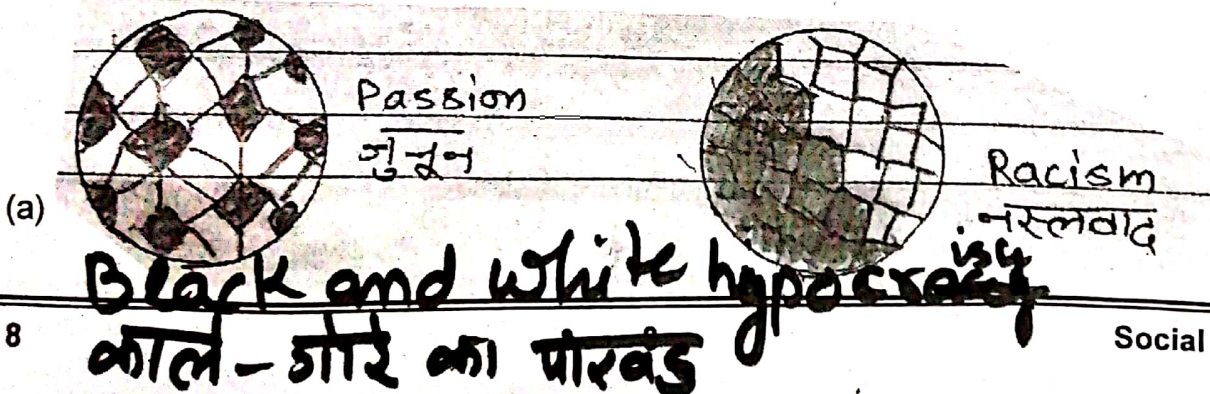 Passion
जुनून
Racism
नस्लवाद
(a)
Black and white hypocrisy
काले-गोरे का पाखंड
8
Social